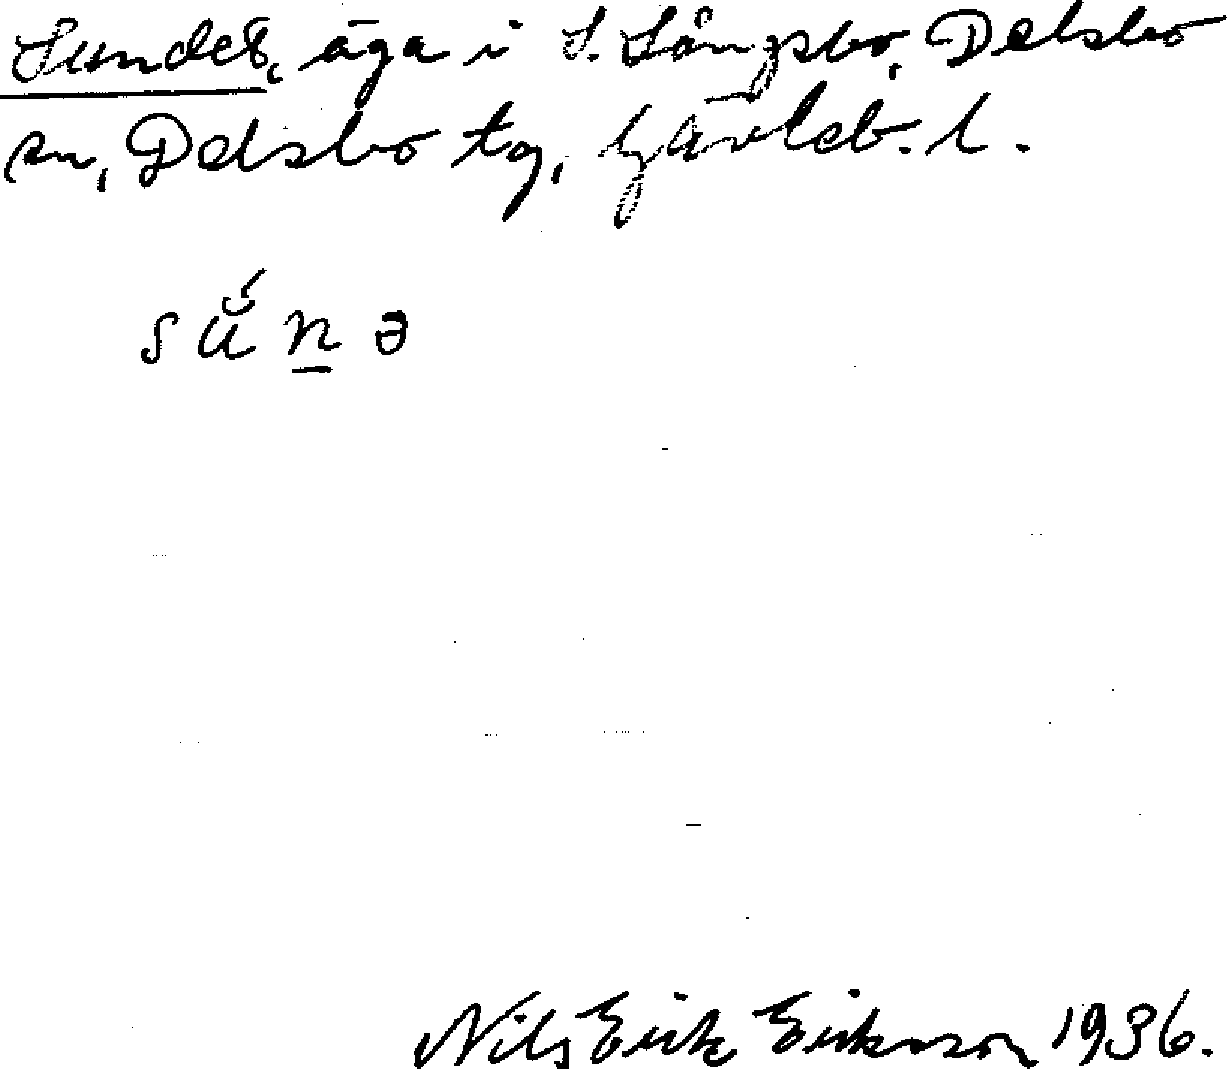 Sundet, äga i S. Långsbo, Delsbo
sn, Delsbo tg, Gävleb. l.
sŭ́n̠ə
Nils Erik Eriksson 1936.